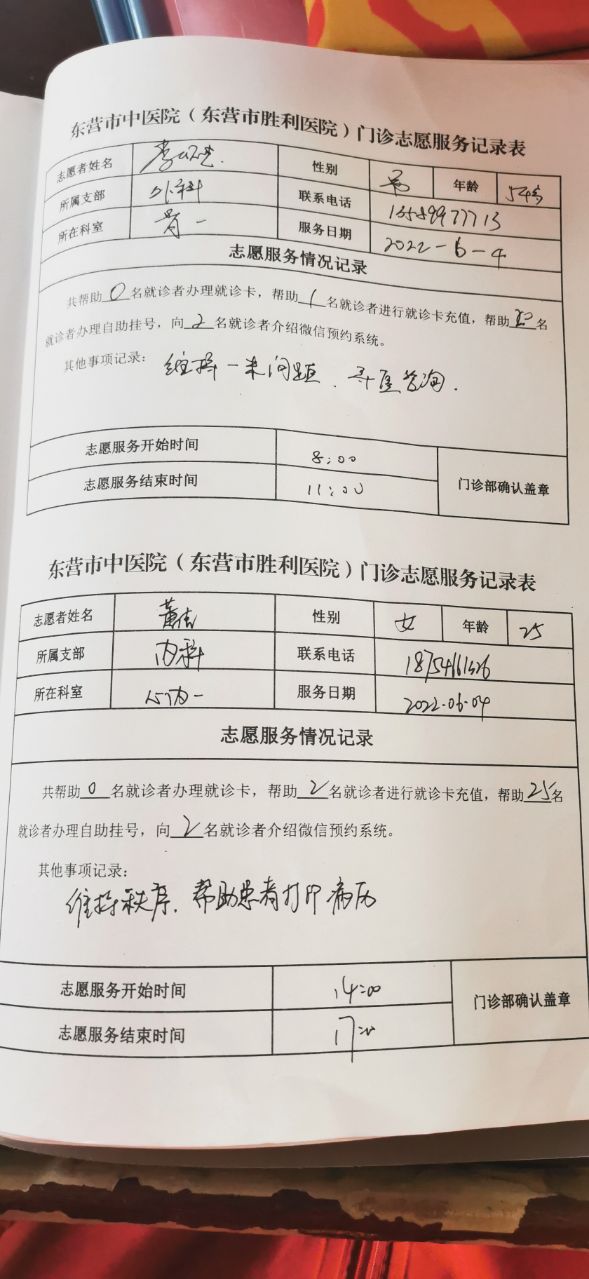 东营市中医院（东营市胜利医院）门诊志愿服务记录表
志愿者姓名 李 性别 男 年龄 54岁
所属支部 外科 联系电话
所在科室 骨一 服务日期 2022-6-4
志愿服务情况记录
共帮助0名就诊者办理就诊卡，帮助1名就诊者进行就诊卡充值，帮助名
就诊者办理自助挂号，向2名就诊者介绍微信预约系统。
其他事项记录：
维持 问题、寻医咨询.
志愿服务开始时间 8:00
志愿服务结束时间 11:00 门诊部确认盖章
东营市中医院（东营市胜利医院）门诊志愿服务记录表
志愿者姓名 性别 女 年龄 25
所属支部 内科 联系电话
所在科室 心内一 服务日期 2022.06.04
志愿服务情况记录
共帮助0名就诊者办理就诊卡，帮助2名就诊者进行就诊卡充值，帮助25名
就诊者办理自助挂号，向2名就诊者介绍微信预约系统。
其他事项记录：
维持秩序、帮助患者打印病历
志愿服务开始时间 14:00
志愿服务结束时间 17:00 门诊部确认盖章